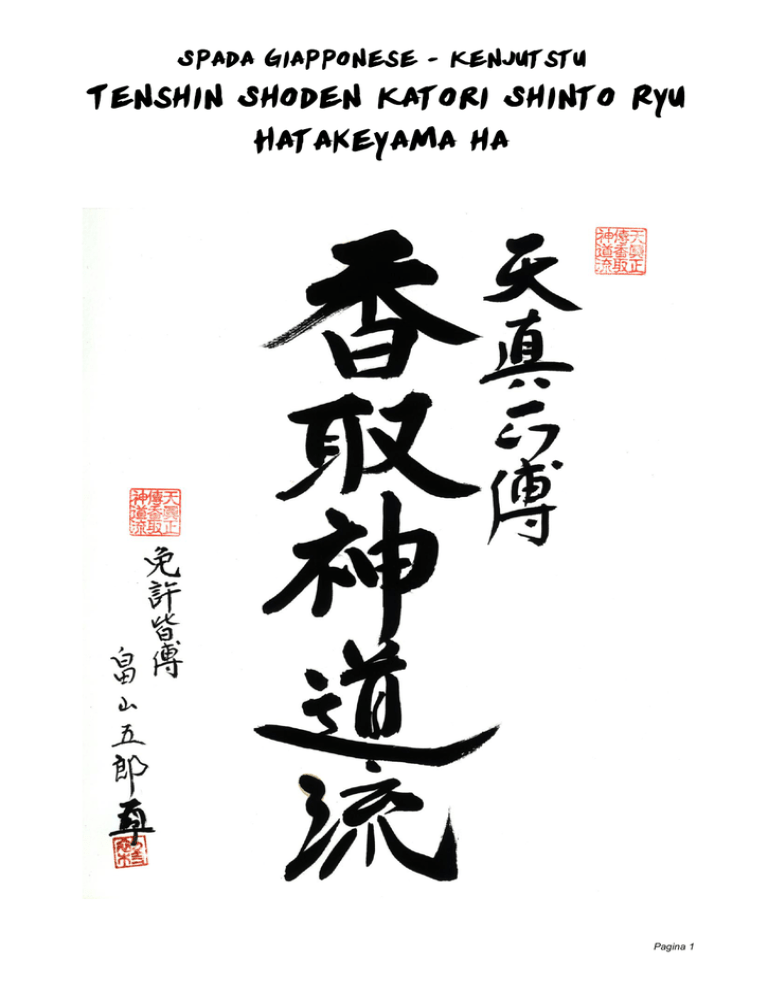 SPADA GIAPPONESE - KENJUTSTU
TENSHIN SHODEN KATORI SHINTO RYU
HATAKEYAMA HA
天眞正傳香取神道流
天真正傳
香取神道流
天眞正傳香取神道流
免許皆傳
畠山五郎
Pagina 1